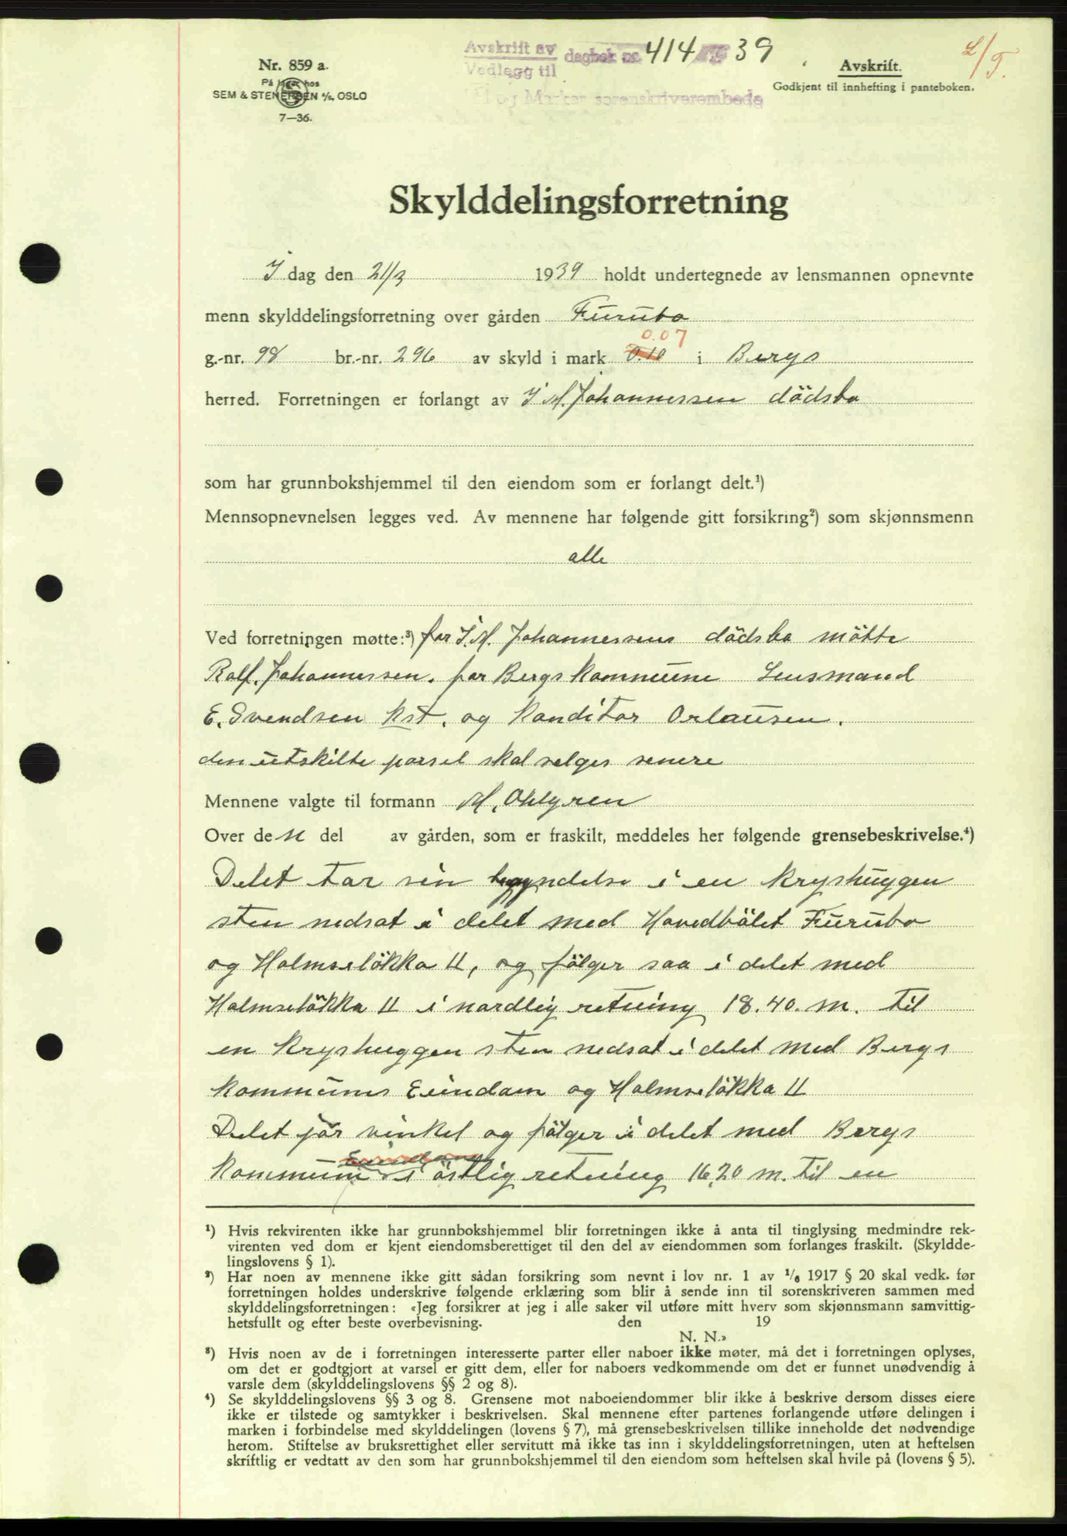 Nr. 859 a.
På lager hos
SEM & STENERSEN A/S, OSLO
7—36.
Avskrift av
Vedlegg til
dagbok nr. 414 1939
og Marker sorenskriverembede
Avskrift.
Godkjent til innhefting i panteboken.
Skylddelingsforretning
I dag den 21/3 1939 holdt undertegnede av lensmannen opnevnte
menn skylddelingsforretning over gården Furubo
0.07
g.-nr. 98 br.-nr. 296 av skyld i mark 0.10 i Bergs
herred. Forretningen er forlangt av J M. Johannessen dödsbo
som har grunnbokshjemmel til den eiendom som er forlangt delt.¹)
Mennsopnevnelsen legges ved. Av mennene har følgende gitt forsikring²) som skjønnsmenn
alle
Ved forretningen møtte:³) for J. M. Johannessens dödsbo mötte
Rolf. Johannessen. for Bergs Kommune Lensmand
E. Svendsen Kst. og Konditor Orlausen.
den utskilte parsel skal selges senere
Mennene valgte til formann M. Ohlgren
Over den del av gården, som er fraskilt, meddeles her følgende grensebeskrivelse.⁴)
Delet tar sin begyndelse i en Kryshuggen
sten nedsat i delet med Hovedbölet Furubo
og Holmseløkka II, og fölger saa i delet med
Holmseløkka II i nordlig retning 18.40. m. til
en Kryshuggen sten nedsat i delet med Bergs
Kommunes Eiendom og Holmseløkka II
Delet gjör vinkel og fölger i delet med Bergs
Eiendom
Kommune i östlig retning 16,20 m. til en
¹) Hvis rekvirenten ikke har grunnbokshjemmel blir forretningen ikke å anta til tinglysing medmindre rek-
virenten ved dom er kjent eiendomsberettiget til den del av eiendommen som forlanges fraskilt. (Skyldde-
lingslovens § 1).
²) Har noen av mennene ikke gitt sådan forsikring som nevnt i lov nr. 1 av 1/6 1917 § 20 skal vedk. før
forretningen holdes underskrive følgende erklæring som blir å sende inn til sorenskriveren sammen med
skylddelingsforretningen: «Jeg forsikrer at jeg i alle saker vil utføre mitt hverv som skjønnsmann samvittig-
hetsfullt og efter beste overbevisning. den 19
N. N.»
³) Hvis noen av de i forretningen interesserte parter eller naboer ikke møter, må det i forretningen oplyses,
om det er godtgjort at varsel er gitt dem, eller for naboers vedkommende om det er funnet unødvendig å
varsle dem (skylddelingslovens §§ 2 og 8).
⁴) Se skylddelingslovens §§ 3 og 8. Grensene mot naboeiendommer blir ikke å beskrive dersom disses eiere
ikke er tilstede og samtykker i beskrivelsen. Skal mennene efter partenes forlangende utføre delingen i
marken i forbindelse med skylddelingen (lovens § 7), må grensebeskrivelsen tillike inneholde det nødvendige
herom. Stiftelse av bruksrettighet eller servitutt må ikke tas inn i skylddelingsforretningen, uten at heftelsen
skriftlig er vedtatt av den som har grunnbokshjemmel til den eiendom som heftelsen skal hvile på (lovens § 5).